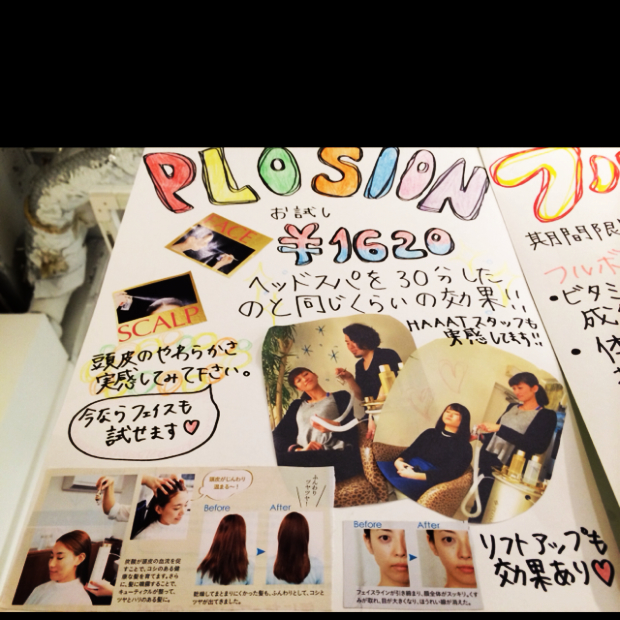 PLOSION
お試し
¥1620
ヘッドスパを30分した
のと同じくらいの効果!!
FACE
SCALP
HAAATスタッフも
実感してます!!
頭皮のやわらかさ
実感してみて下さい。
今ならフェイスも
試せます♡
頭皮がじんわり
温まる〜!
ふんわり
ツヤツヤ!
Before
After
炭酸が頭皮の血流を促
すことで、コシのある健
康な髪を育てます。さら
に、髪に噴霧することで、
キューティクルが整って、
ツヤとハリのある髪に。
乾燥してまとまりにくかった髪も、ふんわりとして、コシと
ツヤが出てきました。
Before
After
フェイスラインが引き締まり、顔全体がスッキリ。くす
みが取れ、目が大きくなり、ほうれい線が消えた。
リフトアップも
効果あり♡
期間限
フルボ
・ビタミ
成
・体